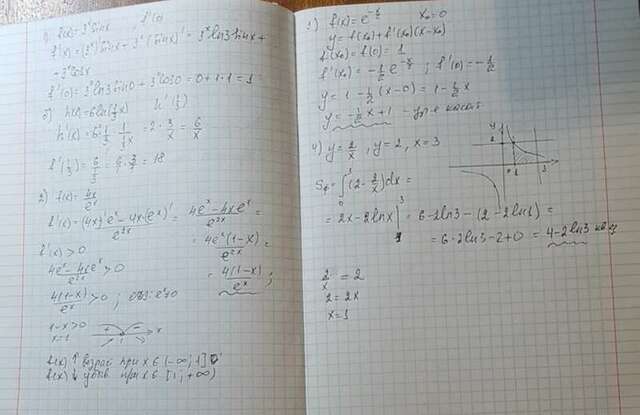 1) f(x)=3ˣsinx f'(0)
f'(x)=(3ˣ)'sinx+3ˣ(sinx)'=3ˣln3sinx+
+3ˣcosx
f'(0)=3⁰ln3sin0+3⁰cos0=0+1·1=1
h'(x)=6·
=2·3/x=6/x
=18
2) f(x)=4x/eˣ
f'(x)=((4x)'eˣ-4x(eˣ)')/e²ˣ=(4eˣ-4xeˣ)/e²ˣ=
=4eˣ(1-x)/e²ˣ=
=4(1-x)/eˣ;
f'(x)>0
(4eˣ-4xeˣ)/e²ˣ>0
4(1-x)/eˣ>0;
1-x>0
x=1
+ - 1 x
f(x)↑ возраст при x∈(-∞;1]
f(x)↓ убыв при x∈[1;+∞)
3) f(x)=e^(-x/2) x₀=0
y=f(x₀)+f'(x₀)(x-x₀)
f(x₀)=f(0)=1
y=1-1/2(x-0)=1-1/2x
y=-1/2x+1 - ур-е касат.
4) y=2/x, y=2, x=3
y 2 1 3 x
(2-2/x)dx=
=2x-2lnx|³₁=6-2ln3-(2-2ln1)=
=6-2ln3-2+0=4-2ln3
2/x=2
2=2x
x=1